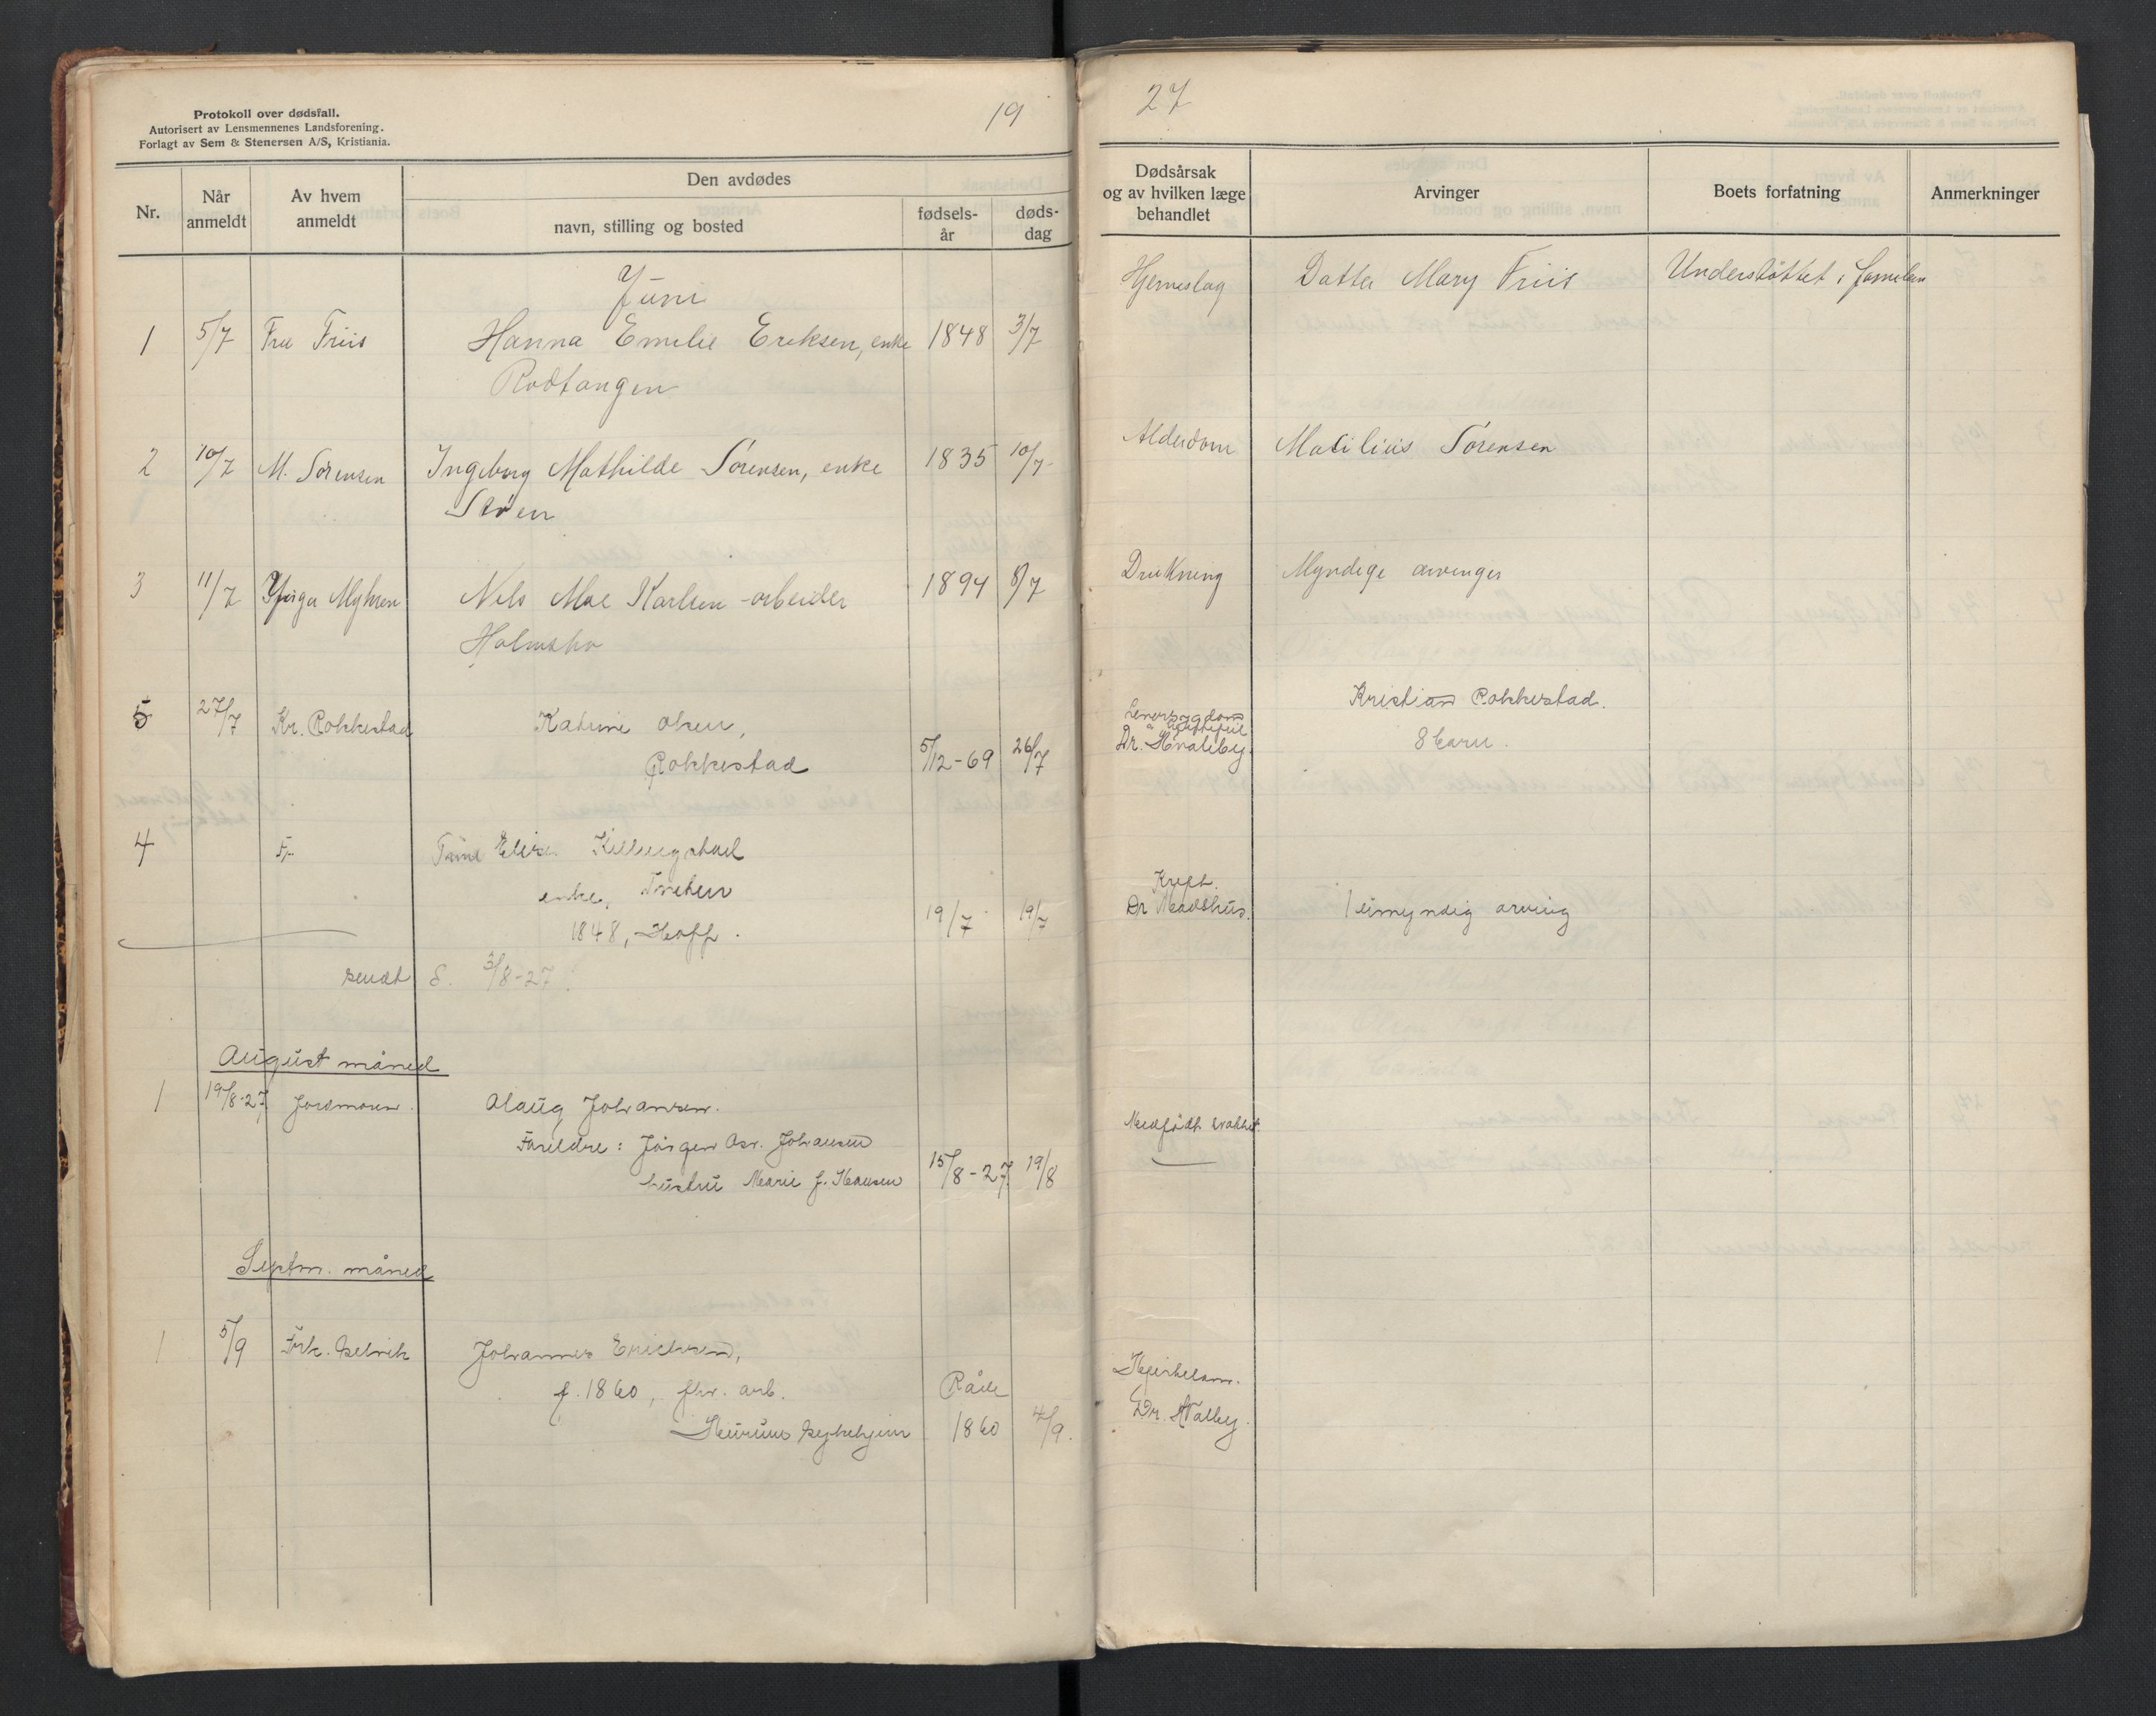 Protokoll over dødsfall.
Autorisert av Lensmennenes Landsforening.
Forlagt av Sem & Stenersen A/S, Kristiania.
19
Nr.
Når anmeldt
Av hvem anmeldt
Den avdødes
navn, stilling og bosted
fødsels-år
døds-dag
Juni
1 5/7 Fru Friis Hanna Emilie Eriksen, enke 1848 3/7
Rødtangen
2 10/7 M. Sørensen Ingeborg Mathilde Sørensen, enke 1835 10/7
Støen
3 11/7 Myhren Nils Moe Karlsen - arbeider 1894 8/7
Holmsbo
5 27/7 Kr. Rokkestad Katrine Olsen,
Rokkestad 5/12-69 26/7
4 Elise
enke,
1848, Hoff. 19/7 19/7
sendt S. 3/8-27.
August måned
1 19/8-27 Jordmoren. Olaug Johansen.
Foreldre: Jørgen Osv. Johansen
hustru Marie f. Hansen 15/8-27 19/8
Septm. måned
1 5/9 Frk. Johannes Erichsen,
f. 1860, fhv. arb. Råde
Hurum sykehjem 1860 4/9.
27
Dødsårsak
og av hvilken læge
behandlet
Arvinger
Boets forfatning
Anmerkninger
Hjerneslag Datter Mary Friis Understøttet i familien
Alderdom Matilius Sørensen
Drukning Myndige arvinger
Kristian Rokkestad.
Leversygdom
Dr. Hvaleby 8 barn.
Kreft.
Dr 1 umyndig arving
Medfødt svakhet.
Dr. Hvalby.